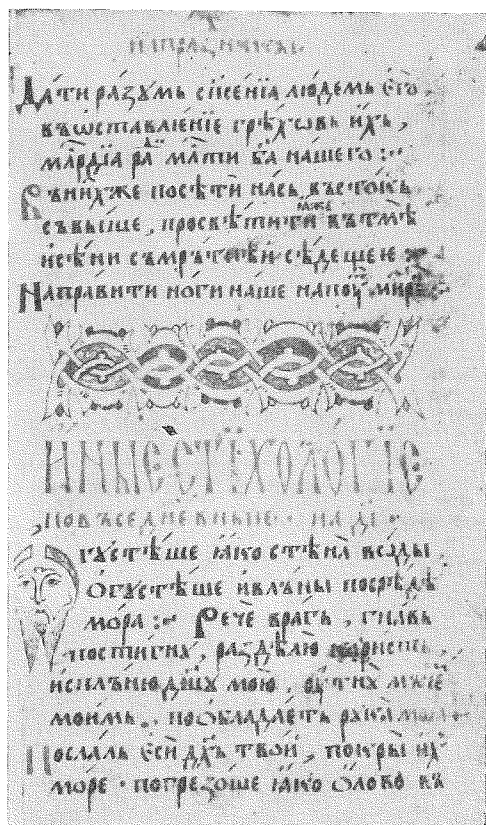 Да́ти ра́зꙋмь сп҃се́нїа лю́демь є҆го̀,
въѡ҆ставлꙗе́нїе грѣхѡ́вь и҆́хь,
мл҃рдїа ра́ди мл҃ти б҃а на́шего :~
Въни́хже посѣти̏ на́сь въсто́кь
съвы́ше, просвѣти́ти въ тмѣ̀
и҆ сѣ́ни съмрь́тнѣи сѣ́дещеѥ :~
Напра́вити но́ги на́ше на поу́ть ми́рь
ИНЫЕ СТЇХОЛОГЇЕ
повъседне́вные
гꙋстѣ́ше ꙗ҆́ко стѣна̀ во́ды
Ѻ҆гꙋстѣ́ше и҆ влъ́ны посрѣ́дѣ
мо́ра :~ Рече̏ вра́гь, гна́вь
пости́гнꙋ, раздѣлю̀ кори́сть,
и҆спль́ню дш҃ꙋ мою̀,
мои́мь, и҆ ѡ҆блада́еть рꙋка̀ моꙗ̀
Посла́ль є҆сѝ дх҃ь твои̏, покры̀ и҆̀хь
мо́ре · погрезо́ше ꙗ҆́ко ѻ҆́лово въ